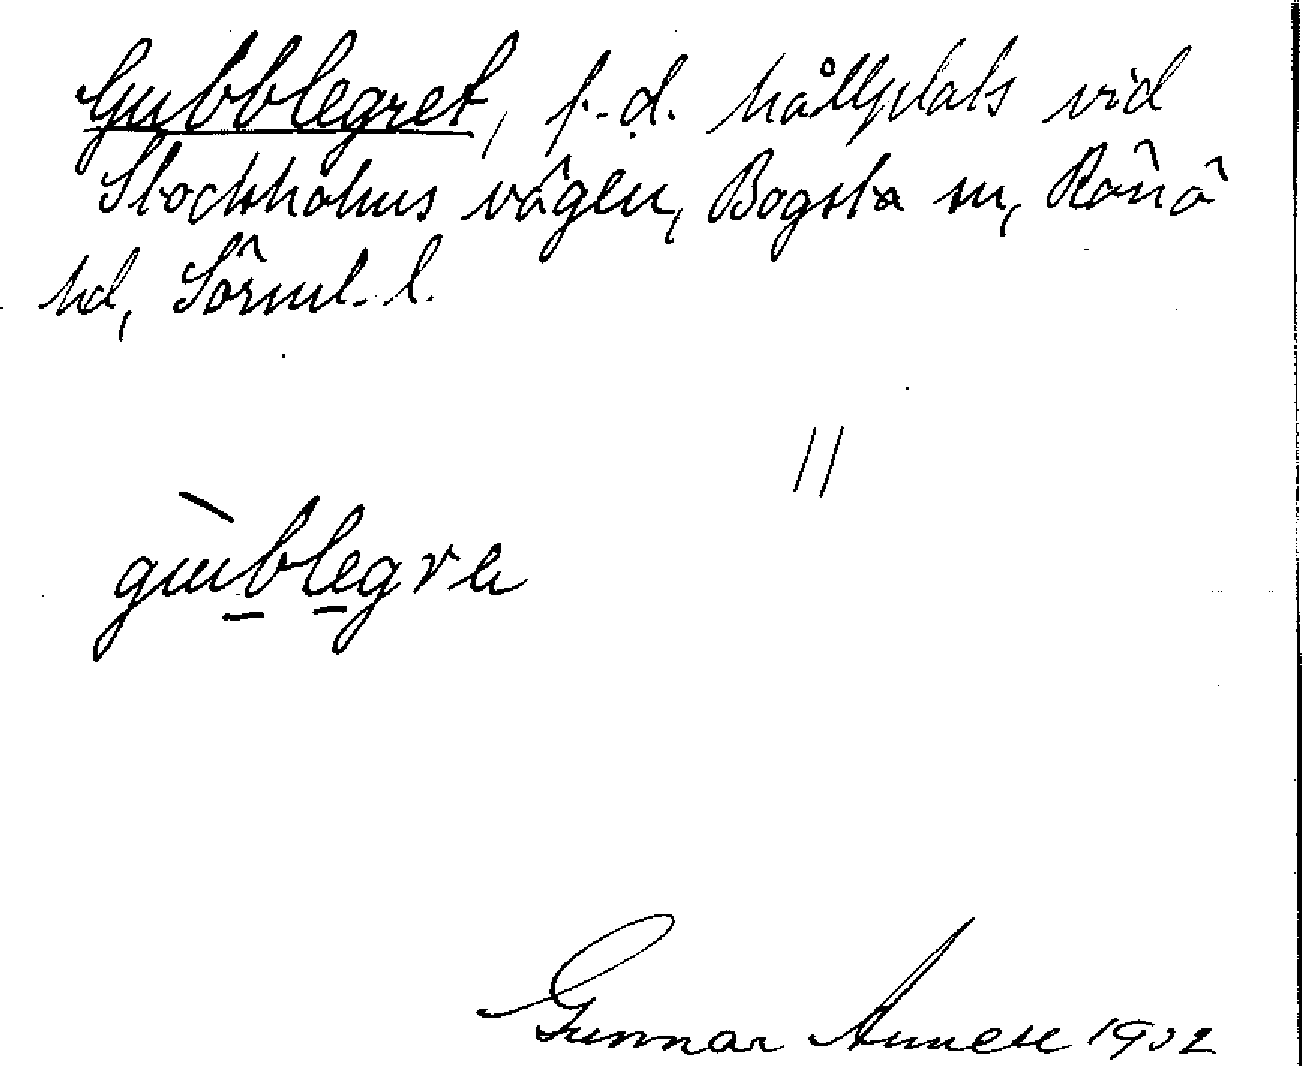 Gubblegret, f.d. hållplats vid
Stockholms vägen, Bogsta sn, Rönö
hd, Sörml. l.
||
gùblegre
Gunnar 1932